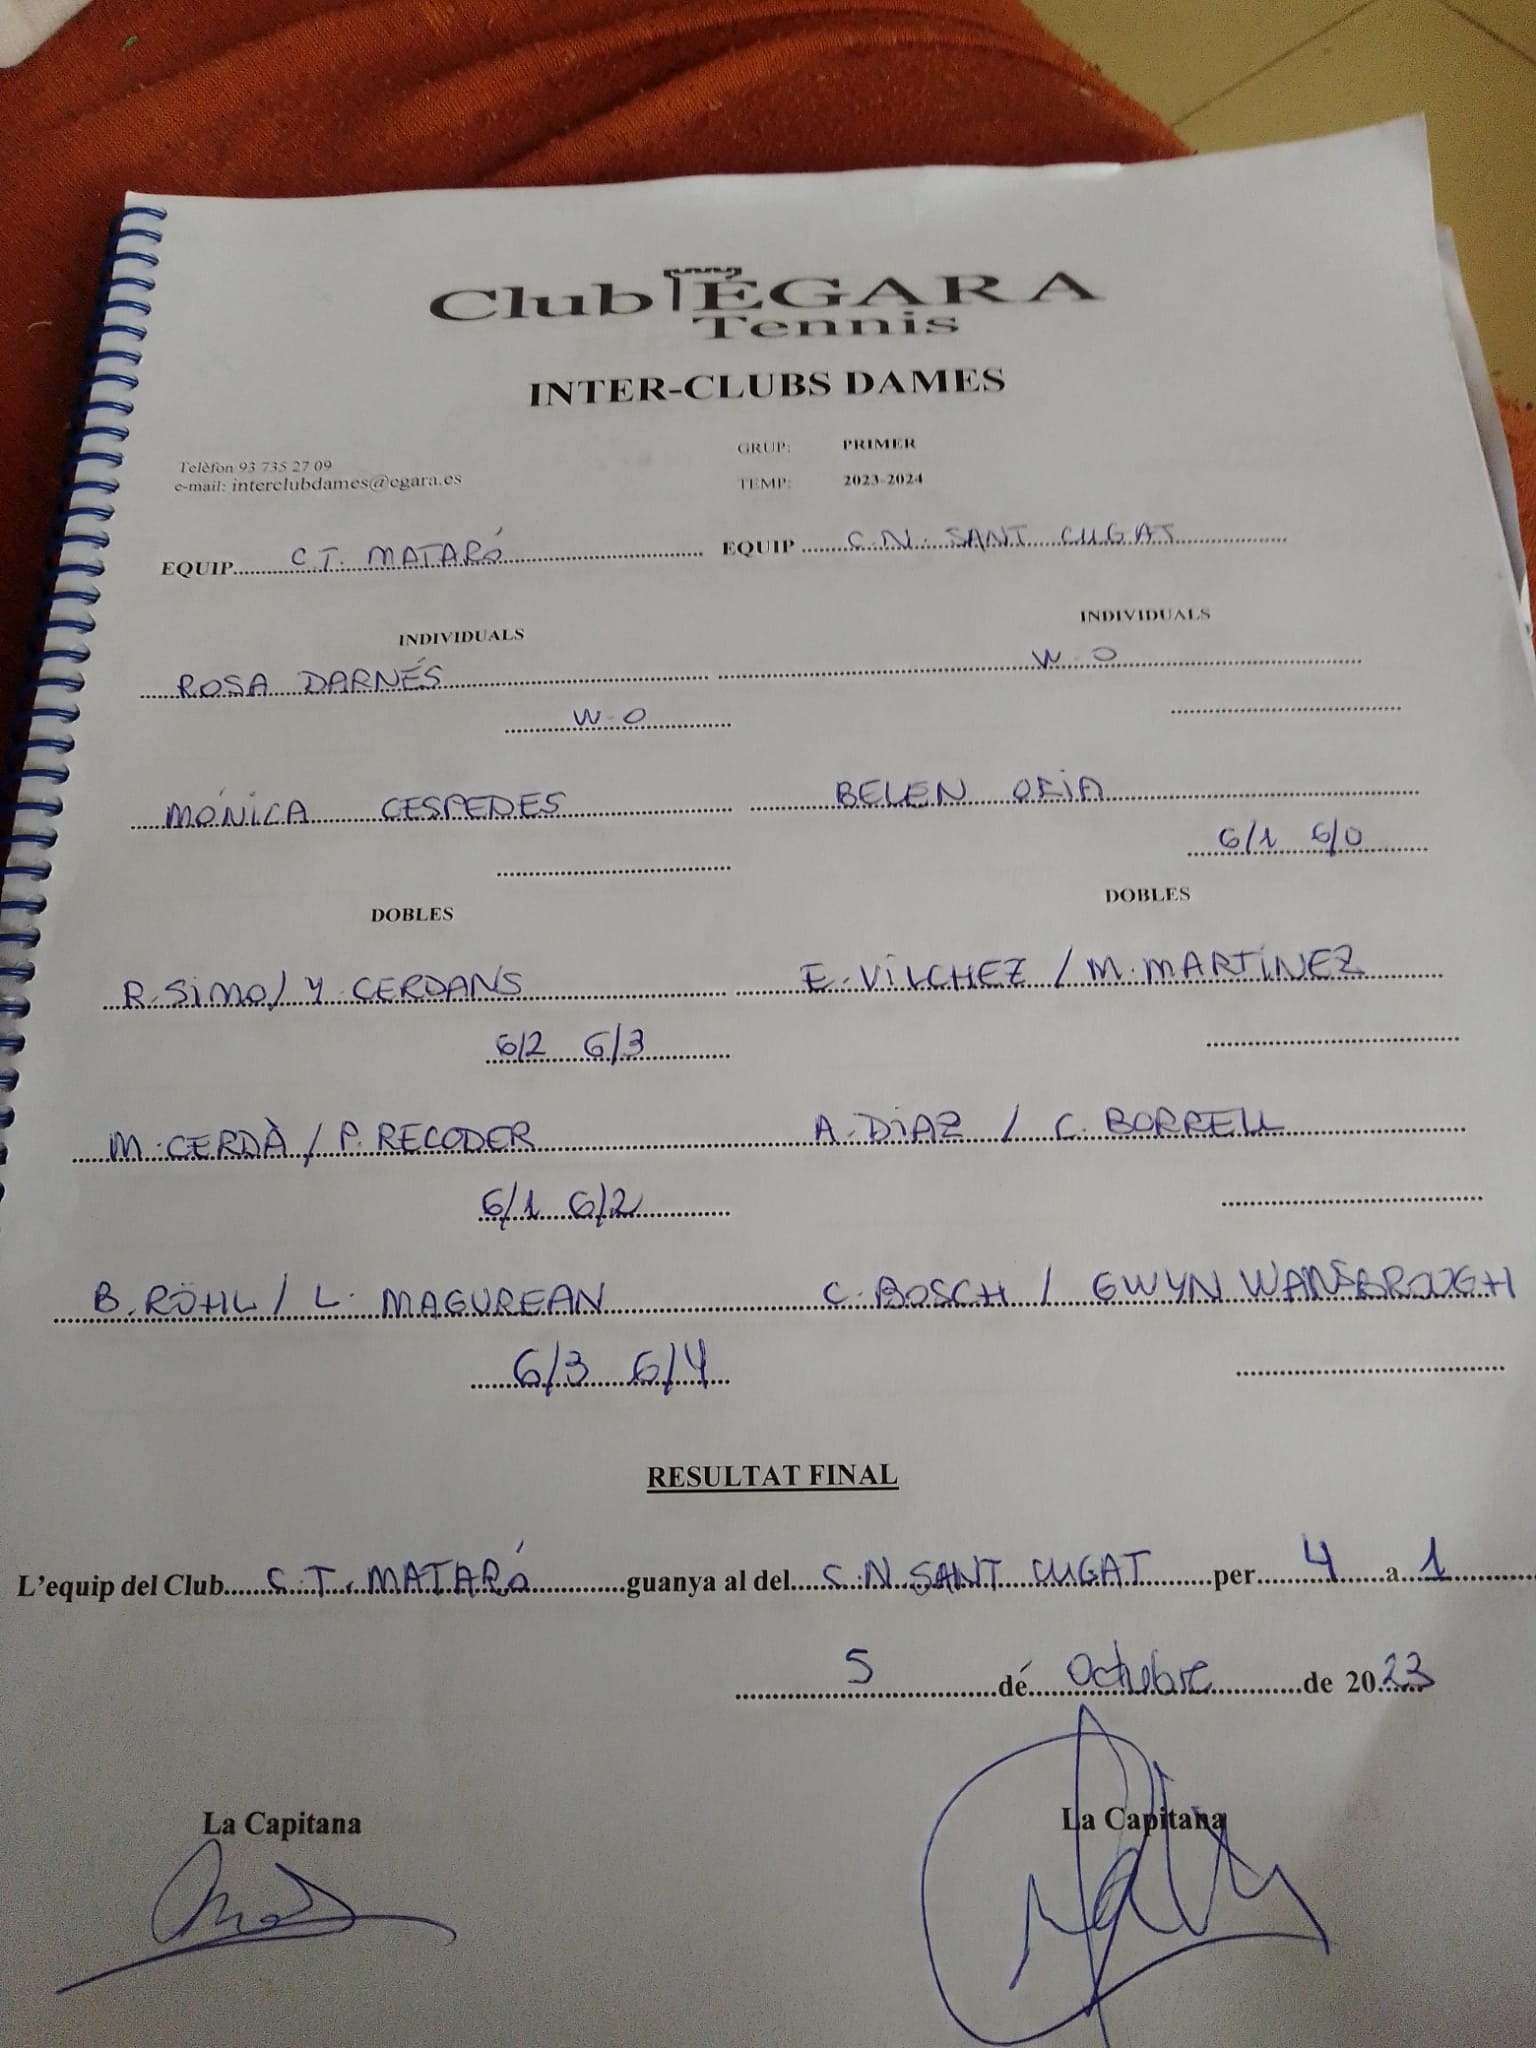 Club ÉGARA
Tennis
INTER-CLUBS DAMES
Telèfon 93 735 27 09
e-mail: interclubdames@egara.es
GRUP: PRIMER
TEMP: 2023-2024
EQUIP C.T. MATARÓ EQUIP C.N. SANT CUGAT
INDIVIDUALS INDIVIDUALS
ROSA DARNÉS W.O
W.O
MÓNICA CESPEDES BELEN ORIA
6/1 6/0
DOBLES DOBLES
R.SIMO/ Y.CERDANS E.VILCHEZ / M.MARTÍNEZ
6/2 6/3
M.CERDÀ / P.RECODER A.DIAZ / C.BORRELL
6/1 6/2
B.RÖHL / L. MAGUREAN C.BOSCH / GWYN WANSBROUGH
6/3 6/4
RESULTAT FINAL
L'equip del Club C.T. MATARÓ guanya al del C.N. SANT CUGAT per 4 a 1
5 de Octubre de 2023
La Capitana La Capitana